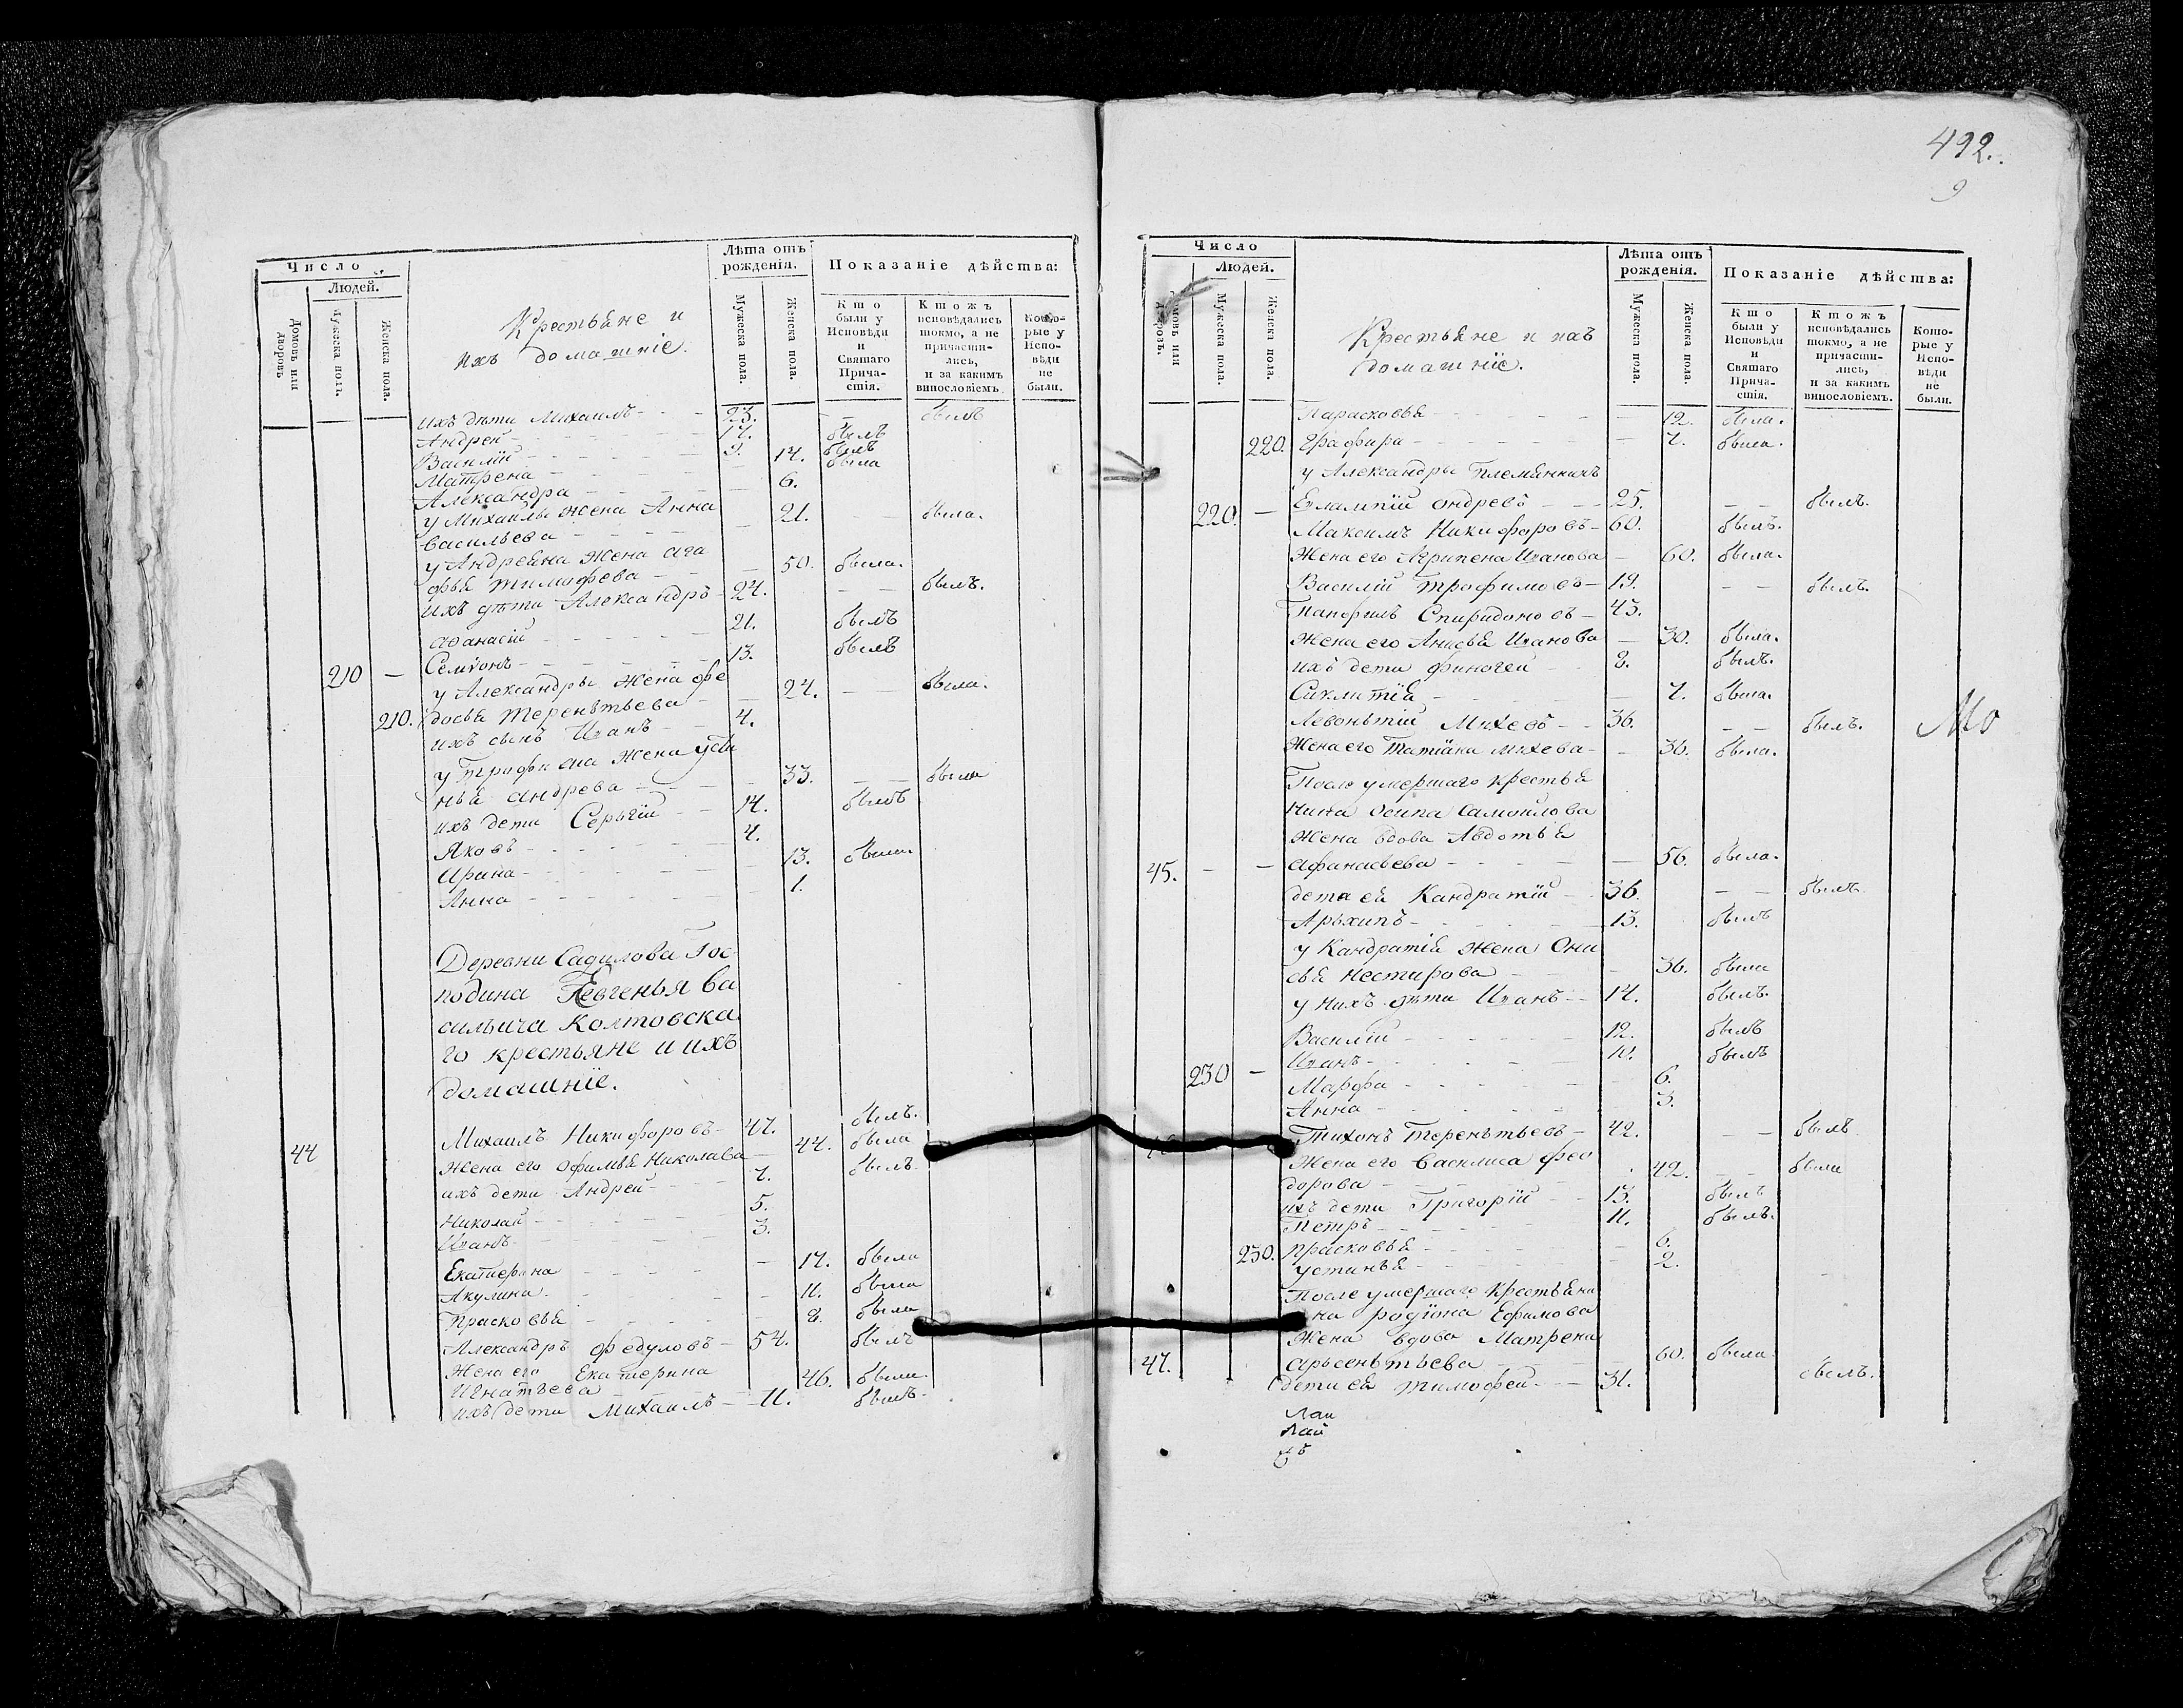 492.
9
Число
Людей.
Домовъ или дворовъ
Мужеска пола.
Женска пола.
Крестьяне и
ихъ домашніе.
Лѣта отъ рожденія.
Мужеска пола.
Женска пола.
Показаніе дѣйства:
Кто были у Исповѣди и Святаго Причастія.
Ктожъ исповѣдались токмо, а не причастились, и за какимъ винословіемъ.
Которые у Исповѣди не были.
ихъ дѣти Михаилъ - - 23. - - былъ
Андрей - - - 17. былъ
Василій - - - 9. былъ
Матрена - - - 14. была
Александра - - - 6.
у Михаилы жена Анна
васильева - - - 21. - - была.
у Андреяна жена ага
фья тимофева - - 50. была.
ихъ дѣти Александръ - 24. - - былъ.
афанасій - - - 21. былъ
210 - Семіонъ - - - 13. былъ
у Александры жена фе
210. досья терентьева - 24. - - была.
ихъ сынъ Иванъ - - 4.
у Трофима жена усти
нья андрева - - - 33. - - была
ихъ дети Серьгій - 14. былъ
Яковъ - - - 4.
Ирина - - - 13. была
Анна - - - 1.
Деревни Садилова Гос
подина Евгенья ва
сильича Колтовска
го крестьяне и ихъ
домашніе.
44 Михаилъ Никифоровъ - 47. былъ.
жена его офимья Николава - 44. была
ихъ дети Андрей - - 7. былъ
Николай - - - 5.
Иванъ - - - 3.
Екатерина - - - 17. была
Акулина - - - 11. была
Прасковья - - - 8. была
Александръ федуловъ - 54. былъ
жена его Екатерина
Игнатьева - - 46. была.
ихъ дети Михаилъ - 11. былъ.
Число
Людей.
Домовъ или дворовъ.
Мужеска пола.
Женска пола.
Крестьяне и ихъ
домашніе.
Лѣта отъ рожденія.
Мужеска пола.
Женска пола.
Показаніе дѣйства:
Кто были у Исповѣди и Святаго Причастія.
Ктожъ исповѣдались токмо, а не причастились, и за какимъ винословіемъ.
Которые у Исповѣди не были.
Парасковья - - - 12. была.
220. Графира - - - 7. была.
у Александры племянникъ
220. - Евлампій ондревъ - - 25. - - былъ.
Максимъ Никифоровъ - 60. былъ.
Жена его Агрипена Иванова - 60. была.
Василій трофимовъ - 19. - - былъ.
Панфилъ Спиридоновъ - 43.
жена его Анисья Иванова - 30. была.
ихъ дети финогей - 8. былъ.
Сиклитія - - - 7. была.
Левонтій Михевъ - - 36. - - былъ.
Мо
жена его Татіяна михева - 36. была.
После умершаго крестья
нина осипа самойлова
жена вдова Авдотья
45. - - афанасьева - - - 56. была.
дети ея Кандратій - 36. - - былъ
Архипъ - - - 13. былъ
у Кандратія жена Они
сья нестирова - - 36. была
у нихъ дѣти Иванъ - - 14. былъ.
Василій - - - 12. былъ
230 - Иванъ - - - 10. былъ
Марфа - - - 6.
Анна - - - 3.
Тихонъ Терентьевъ - 42. - - былъ
Жена его василиса фео
дорова - - - 42. - - была
ихъ дети Григорій - - 13. былъ
Петръ - - - 11. былъ.
230. прасковья - - - 6.
устинья - - - 2.
После умершаго крестьяни
на родіона Ефимова
жена вдова Матрена
47. арьсентьева - - - 60. была.
дети ея тимофей - - 31. былъ.